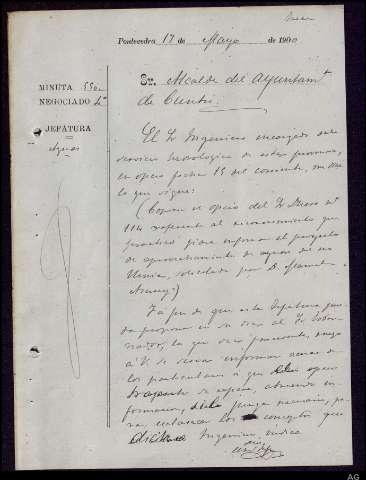 Pontevedra 17 de Mayo de 1900
MINUTA
NEGOCIADO
JEFATURA
Aguas
Sr. Alcalde del Ayuntamt
de Cuntis
El Sr Ingeniero encargado del
servicio hidrológico de esta provincia,
en oficio fecha 15 del corriente, me dice
lo que sigue:
(Copiar el oficio del Sr
114 referente al reconocimiento que
para informar el proyecto
de aprovechamiento de aguas del rio
Umia, solicitado por D Manuel
A fin de que esta Jefatura pue-
da proponer en su dia al Sr Gober-
nador, lo que crea procedente, ruego
á V. se sirva informar acerca de
los particulares á que el oficio
se copia, abriendo in-
formacion, si lo juzga necesario, pa-
ra los conceptos que
Ingeniero indica
AG